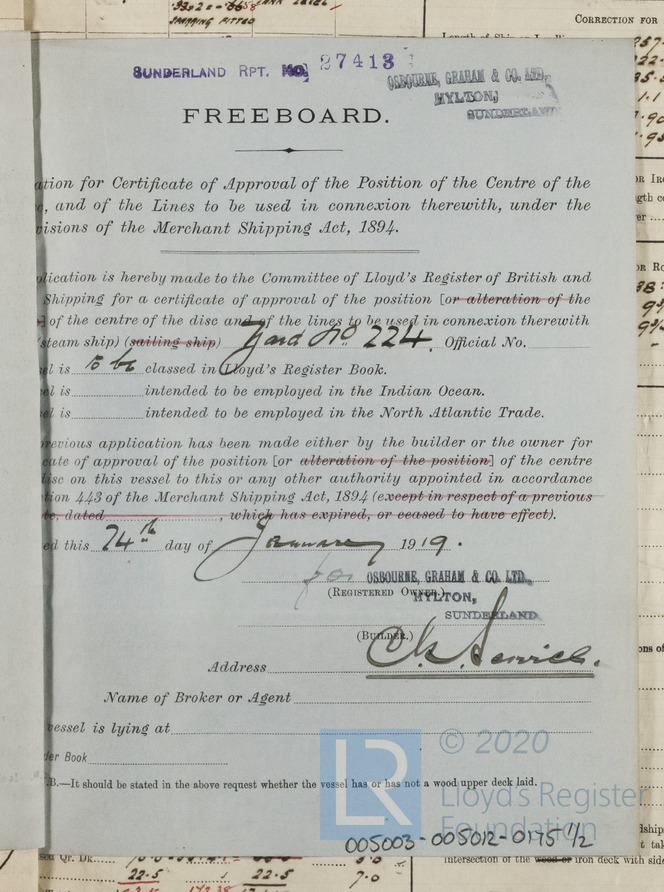 SHIPPING FITTED
CORRECTION FOR
SUNDERLAND RPT. No. 27413
OSBOURNE, GRAHAM & CO. LTD.,
HYLTON,
SUNDERLAND
FREEBOARD.
ation for Certificate of Approval of the Position of the Centre of the
, and of the Lines to be used in connexion therewith, under the
visions of the Merchant Shipping Act, 1894.
plication is hereby made to the Committee of Lloyd's Register of British and
Shipping for a certificate of approval of the position [or alteration of the
] of the centre of the disc and of the lines to be used in connexion therewith
(steam ship) (sailing ship) Yard No 224. Official No.
el is to be classed in Lloyd's Register Book.
el is intended to be employed in the Indian Ocean.
el is intended to be employed in the North Atlantic Trade.
revious application has been made either by the builder or the owner for
cate of approval of the position [or alteration of the position] of the centre
disc on this vessel to this or any other authority appointed in accordance
tion 443 of the Merchant Shipping Act, 1894 (except in respect of a previous
te, dated , which has expired, or ceased to have effect).
ed this 24th day of January 1919.
for OSBOURNE, GRAHAM & CO. LTD.,
(REGISTERED OWNER.)
HYLTON,
SUNDERLAND
(BUILDER.)
Address
Name of Broker or Agent
vessel is lying at
der Book
.B.—It should be stated in the above request whether the vessel has or has not a wood upper deck laid.
LR © 2020
Lloyd's Register
Foundation
005003-005012-0175 1/2
22.5 1 22.5 7.0
intersection of the wood or iron deck with side